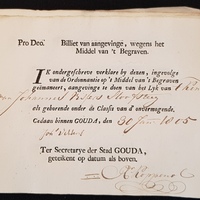 Pro Deo. Billiet van aangevinge, wegens het
Middel van 't Begraven.
IK ondergeschreve verklare by dezen, ingevolge
van de Ordonnantie op 't Middel van 't Begraven
geëmaneert, aangevinge te doen van het Lyk van 't Kind
van Johannes
als gehorende onder de Classis van d' onvermogende.
Gedaan binnen GOUDA, den 30 1805
Ter Secretarye der Stad GOUDA,
geteikent op datum als boven.